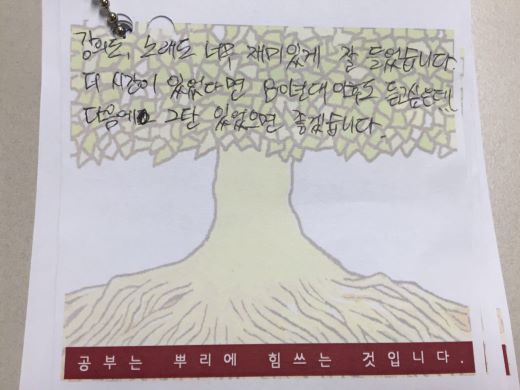 강의도, 노래도 너무 재미있게 잘 들었습니다.
더 시간이 있었다면 80년대 이후도 듣고싶은데
다음에 2탄 있었으면 좋겠습니다.
공부는 뿌리에 힘쓰는 것입니다.